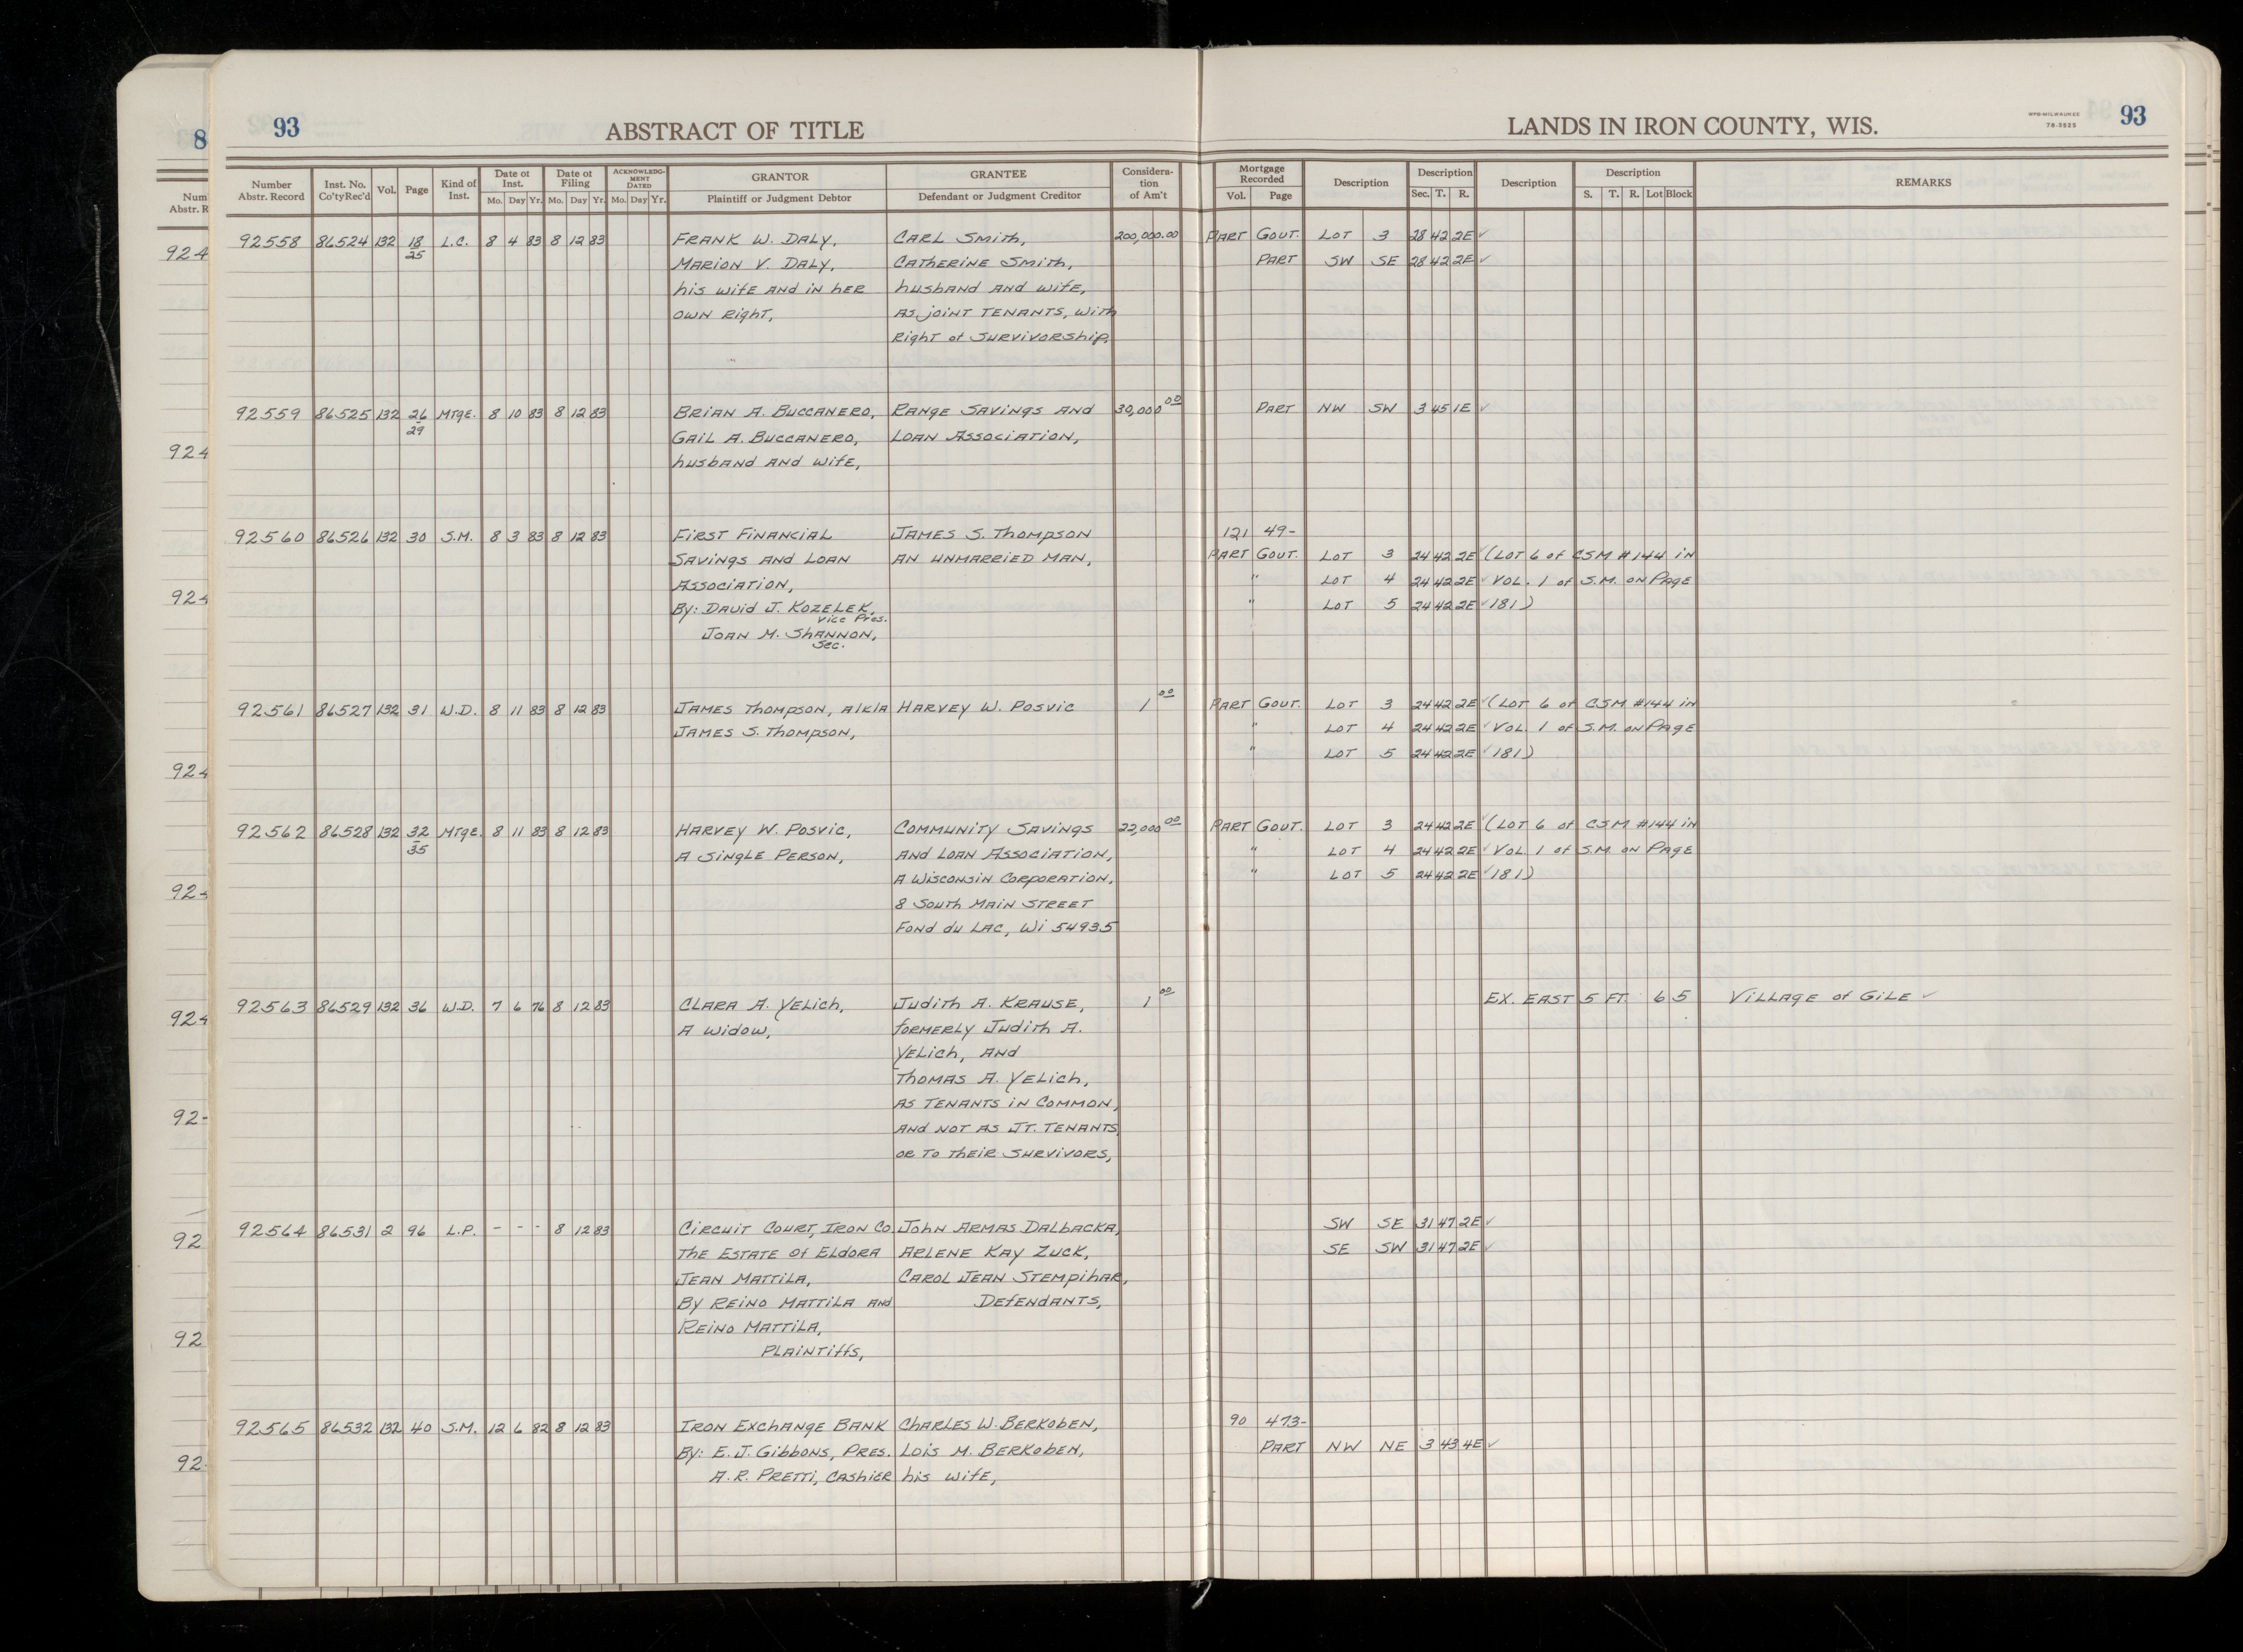 93 ABSTRACT OF TITLE LANDS IN IRON COUNTY, WIS. WPB-MILWAUKEE 78-3525 93
Number Abstr. Record Inst. No. Co'tyRec'd Vol. Page Kind of Inst. Date of Inst. Mo. Day Yr. Date of Filing Mo. Day Yr. ACKNOWLEDG-MENT DATED Mo. Day Yr. GRANTOR Plaintiff or Judgment Debtor GRANTEE Defendant or Judgment Creditor Considera-tion of Am't Mortgage Recorded Vol. Page Description Description Sec. T. R. Description Description S. T. R. Lot Block REMARKS
92558 86524 132 18 L.C. 8 4 83 8 12 83 FRANK W. DALY, CARL SMITH, 200,000.00 PART GOVT. LOT 3 28 42 2E ✓
25 MARION V. DALY, CATHERINE SMITH, PART SW SE 28 42 2E ✓
his wife AND in hER husbAND AND wifE,
OWN Right, AS joint TENANTS, with
Right of SURVIVORShip,
92559 86525 132 26 MTgE. 8 10 83 8 12 83 BRIAN A. BUCCANERO, RANGE SAVINGS AND 30,000 00 PART NW SW 3 45 1E ✓
29 GAIL A. BUCCANERO, LOAN ASSOCIATION,
husbAND AND WifE,
92560 86526 132 30 S.M. 8 3 83 8 12 83 FIRST FINANCIAL JAMES S. ThOMPSON 121 49-
SAVINGS AND LOAN AN UNMARRIED MAN, PART GOVT. LOT 3 24 42 2E ✓ (LOT 6 of CSM #144 iN
ASSOCIATION, " LOT 4 24 42 2E ✓ VOL. 1 of S.M. ON PAgE
By: DAVid J. KOZELEK, " LOT 5 24 42 2E ✓ 181)
Vice Pres.
JOAN M. ShANNON,
Sec.
92561 86527 132 31 W.D. 8 11 83 8 12 83 JAMES ThOMPSON, A/K/A HARVEY W. POSVIC 1 00 PART GOVT. LOT 3 24 42 2E ✓ (LOT 6 of CSM #144 iN
JAMES S. ThOMPSON, LOT 4 24 42 2E ✓ VOL. 1 of S.M. ON PAgE
" LOT 5 24 42 2E ✓ 181)
92562 86528 132 32 MTgE. 8 11 83 8 12 83 HARVEY W. POSVIC, COMMUNITY SAVINGS 22,000 00 PART GOVT. LOT 3 24 42 2E ✓ (LOT 6 of CSM #144 iN
35 A SiNgLE PERSON, AND LOAN ASSOCIATION, " LOT 4 24 42 2E ✓ VOL 1 of S.M. ON PAgE
A WISCONSIN CORPORATION, " LOT 5 24 42 2E ✓ 181)
8 SOUTH MAIN STREET
FOND du LAC, Wi 54935
92563 86529 132 36 W.D. 7 6 76 8 12 83 CLARA A. YELICh, JudiTh A. KRAUSE, 1 00 EX. EAST 5 FT. 6 5 VILLAGE of GILE ✓
A Widow, fORMERLY JudiTh A.
YELICh, AND
ThOMAS A. YELICh,
AS TENANTS iN COMMON,
AND NOT AS JT. TENANTS,
OR TO ThEiR SURVIVORS,
92564 86531 2 96 L.P. - - - 8 12 83 CIRCUIT COURT, IRON CO. JOhN ARMAS DALbACKA, SW SE 31 47 2E ✓
ThE ESTATE Of ELdORA ARLENE KAY ZUCK, SE SW 31 47 2E ✓
JEAN MATTILA, CAROL JEAN STEMPihAR,
By REINO MATTILA AND DEfENdANTS,
REINO MATTILA,
PLAINTiffs,
92565 86532 132 40 S.M. 12 6 82 8 12 83 IRON EXChANgE BANK ChARLES W. BERKObEN, 90 473-
By: E. J. GIbbONS, PRES. LOIS M. BERKObEN, PART NW NE 3 43 4E ✓
A. R. PRETTI, CAShIER his WifE,